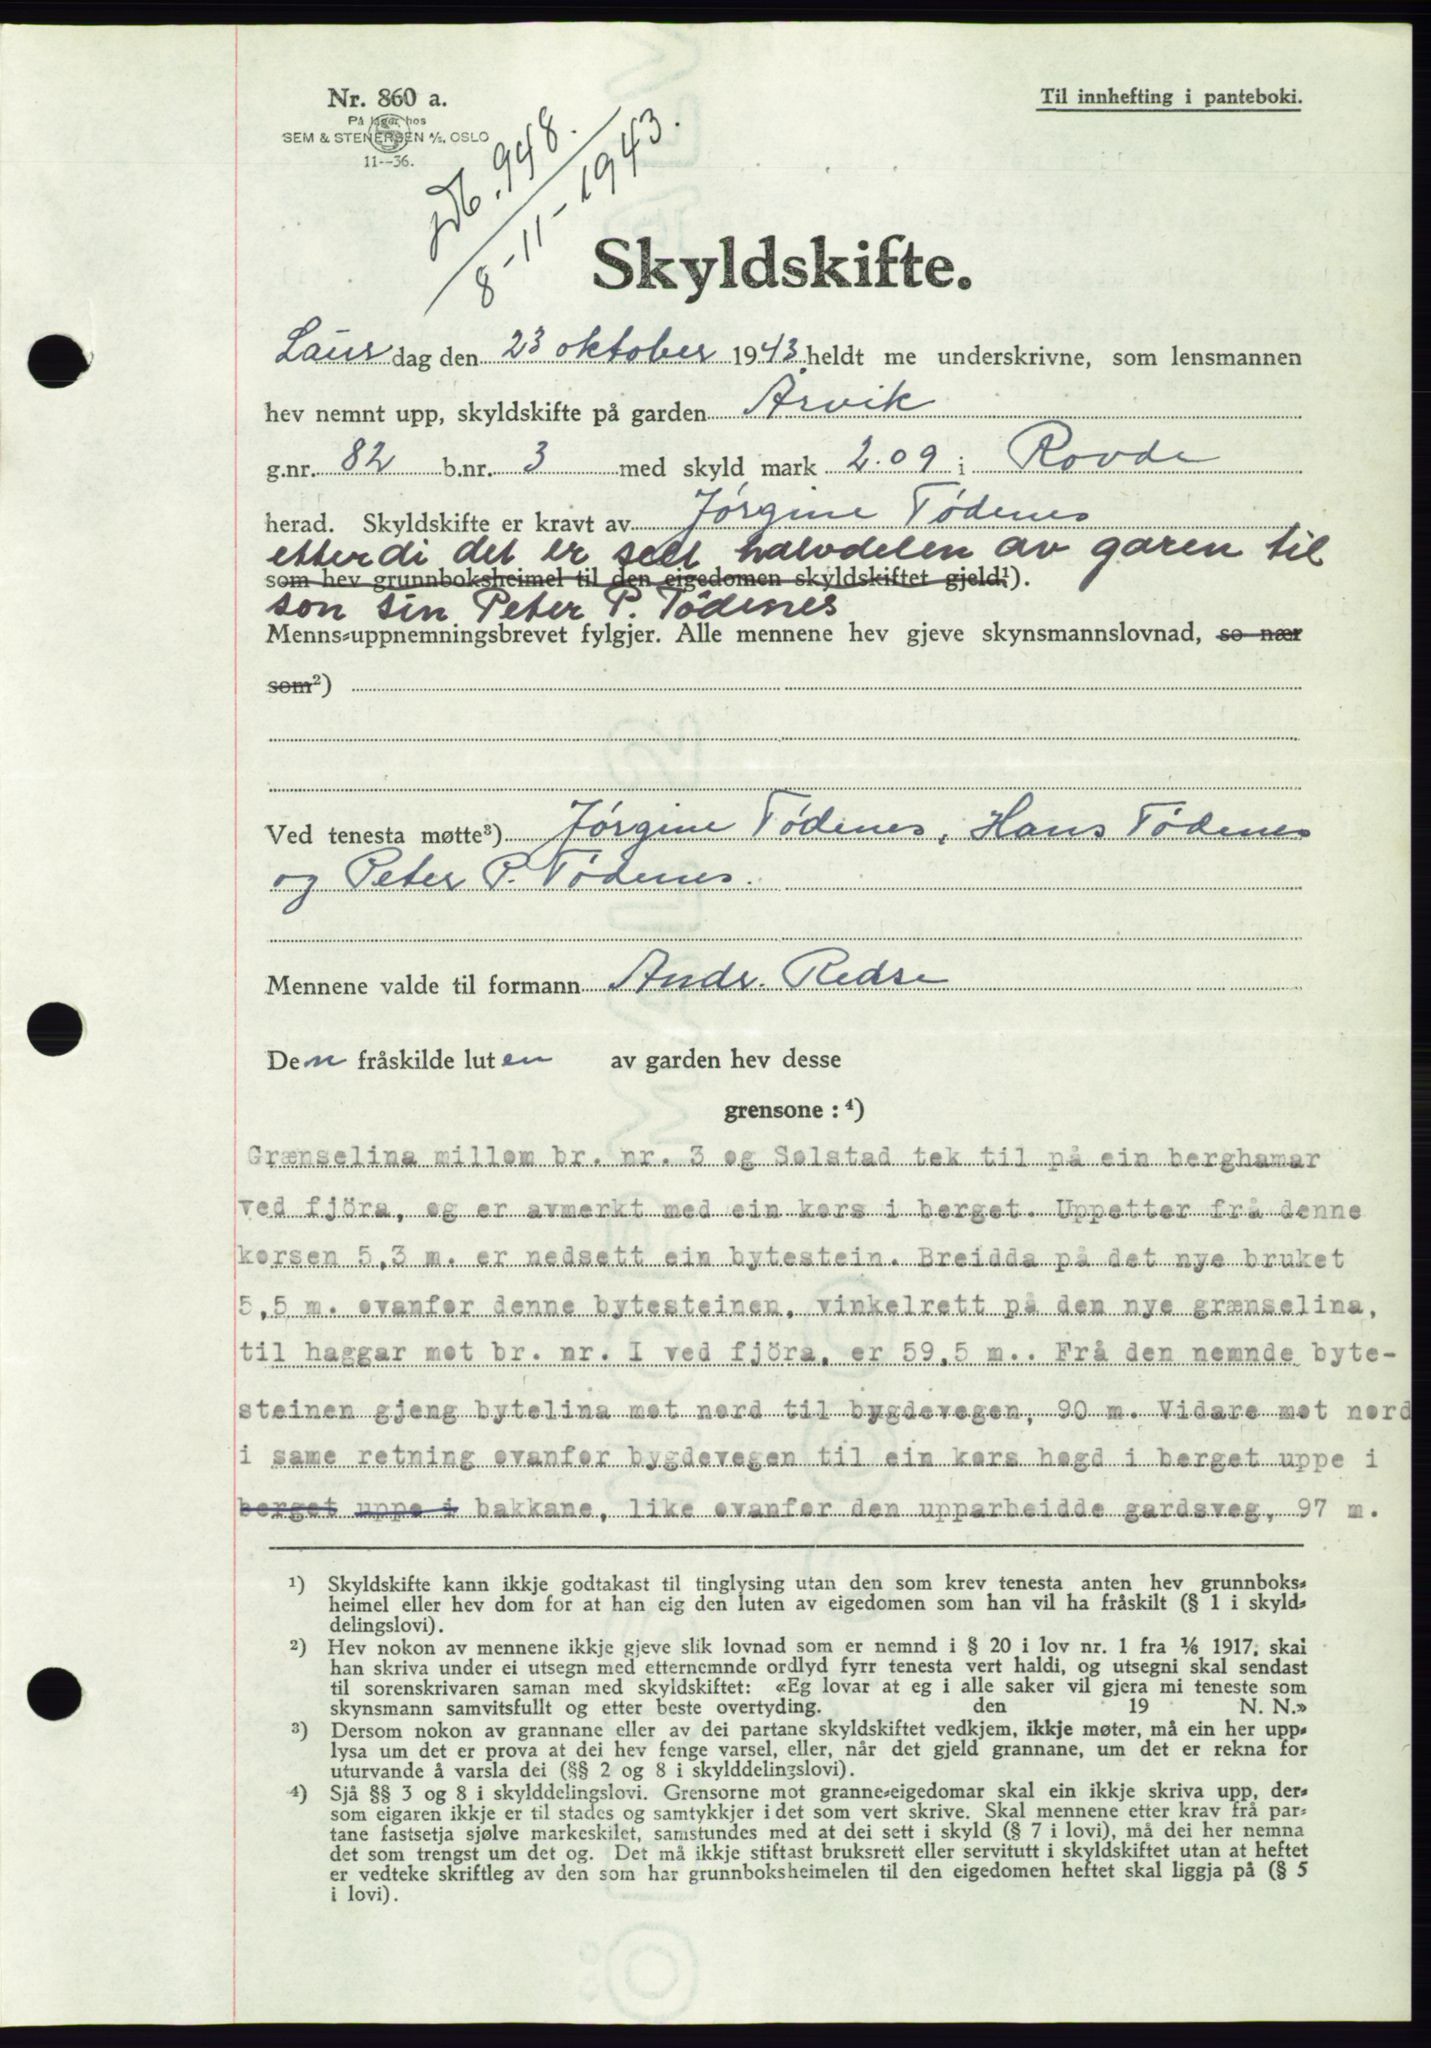 Nr. 860 a.
På lager hos
SEM & STENERSEN A/S, OSLO
11--36.
Til innhefting i panteboki.
948.
8-11-1943.
Skyldskifte.
Laurdag den 23 oktober 1943 heldt me underskrivne, som lensmannen
hev nemnt upp, skyldskifte på garden Årvik
g.nr. 82 b.nr. 3 med skyld mark 2.09 i Rovde
herad. Skyldskifte er kravt av Jørgine Tødenes
etterdi det er selt halvdelen av garen til
som hev grunnboksheimel til den eigedomen skyldskiftet gjeld¹).
son sin Peter P. Tödenes
Menns-uppnemningsbrevet fylgjer. Alle mennene hev gjeve skynsmannslovnad, so nær
som²)
Ved tenesta møtte³) Jørgine Tødenes, Hans Tødenes
og Peter P. Tødenes.
Mennene valde til formann Andr. Redse
Den fråskilde luten av garden hev desse
grensone : ⁴)
Grænselina millom br. nr. 3 og Solstad tek til på ein berghamar
ved fjöra, og er avmerkt med ein kors i berget. Uppetter frå denne
korsen 5,3 m. er nedsett ein bytestein. Breidda på det nye bruket
5,5 m. ovanfor denne bytesteinen, vinkelrett på den nye grænselina,
til haggar mot br. nr. I ved fjöra, er 59,5 m.. Frå den nemnde byte-
steinen gjeng bytelina mot nord til bygdevegen, 90 m. Vidare mot nord
i same retning ovanfor bygdevegen til ein kors hogd i berget uppe i
berget uppe i bakkane, like ovanfor den upparbeidde gardsveg, 97 m.
¹) Skyldskifte kann ikkje godtakast til tinglysing utan den som krev tenesta anten hev grunnboks-
heimel eller hev dom for at han eig den luten av eigedomen som han vil ha fråskilt (§ 1 i skyld-
delingslovi).
²) Hev nokon av mennene ikkje gjeve slik lovnad som er nemnd i § 20 i lov nr. 1 fra ⅙ 1917, skal
han skriva under ei utsegn med etternemnde ordlyd fyrr tenesta vert haldi, og utsegni skal sendast
til sorenskrivaren saman med skyldskiftet: «Eg lovar at eg i alle saker vil gjera mi teneste som
skynsmann samvitsfullt og etter beste overtyding. den 19 N. N.»
³) Dersom nokon av grannane eller av dei partane skyldskiftet vedkjem, ikkje møter, må ein her upp-
lysa um det er prova at dei hev fenge varsel, eller, når det gjeld grannane, um det er rekna for
uturvande å varsla dei (§§ 2 og 8 i skylddelingslovi).
⁴) Sjå §§ 3 og 8 i skylddelingslovi. Grensorne mot granne-eigedomar skal ein ikkje skriva upp, der-
som eigaren ikkje er til stades og samtykkjer i det som vert skrive. Skal mennene etter krav frå par-
tane fastsetja sjølve markeskilet, samstundes med at dei sett i skyld (§ 7 i lovi), må dei her nemna
det som trengst um det og. Det må ikkje stiftast bruksrett eller servitutt i skyldskiftet utan at heftet
er vedteke skriftleg av den som har grunnboksheimelen til den eigedomen heftet skal liggja på (§ 5
i lovi).